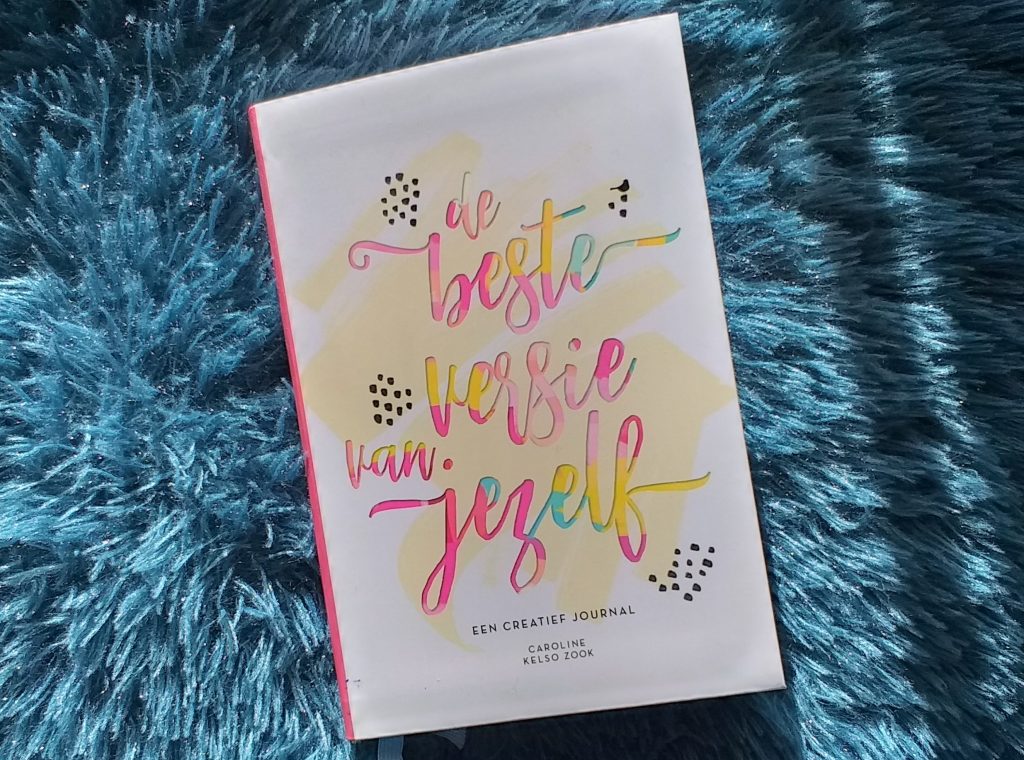 de
beste
versie
van
jezelf
EEN CREATIEF JOURNAL
CAROLINE
KELSO ZOOK